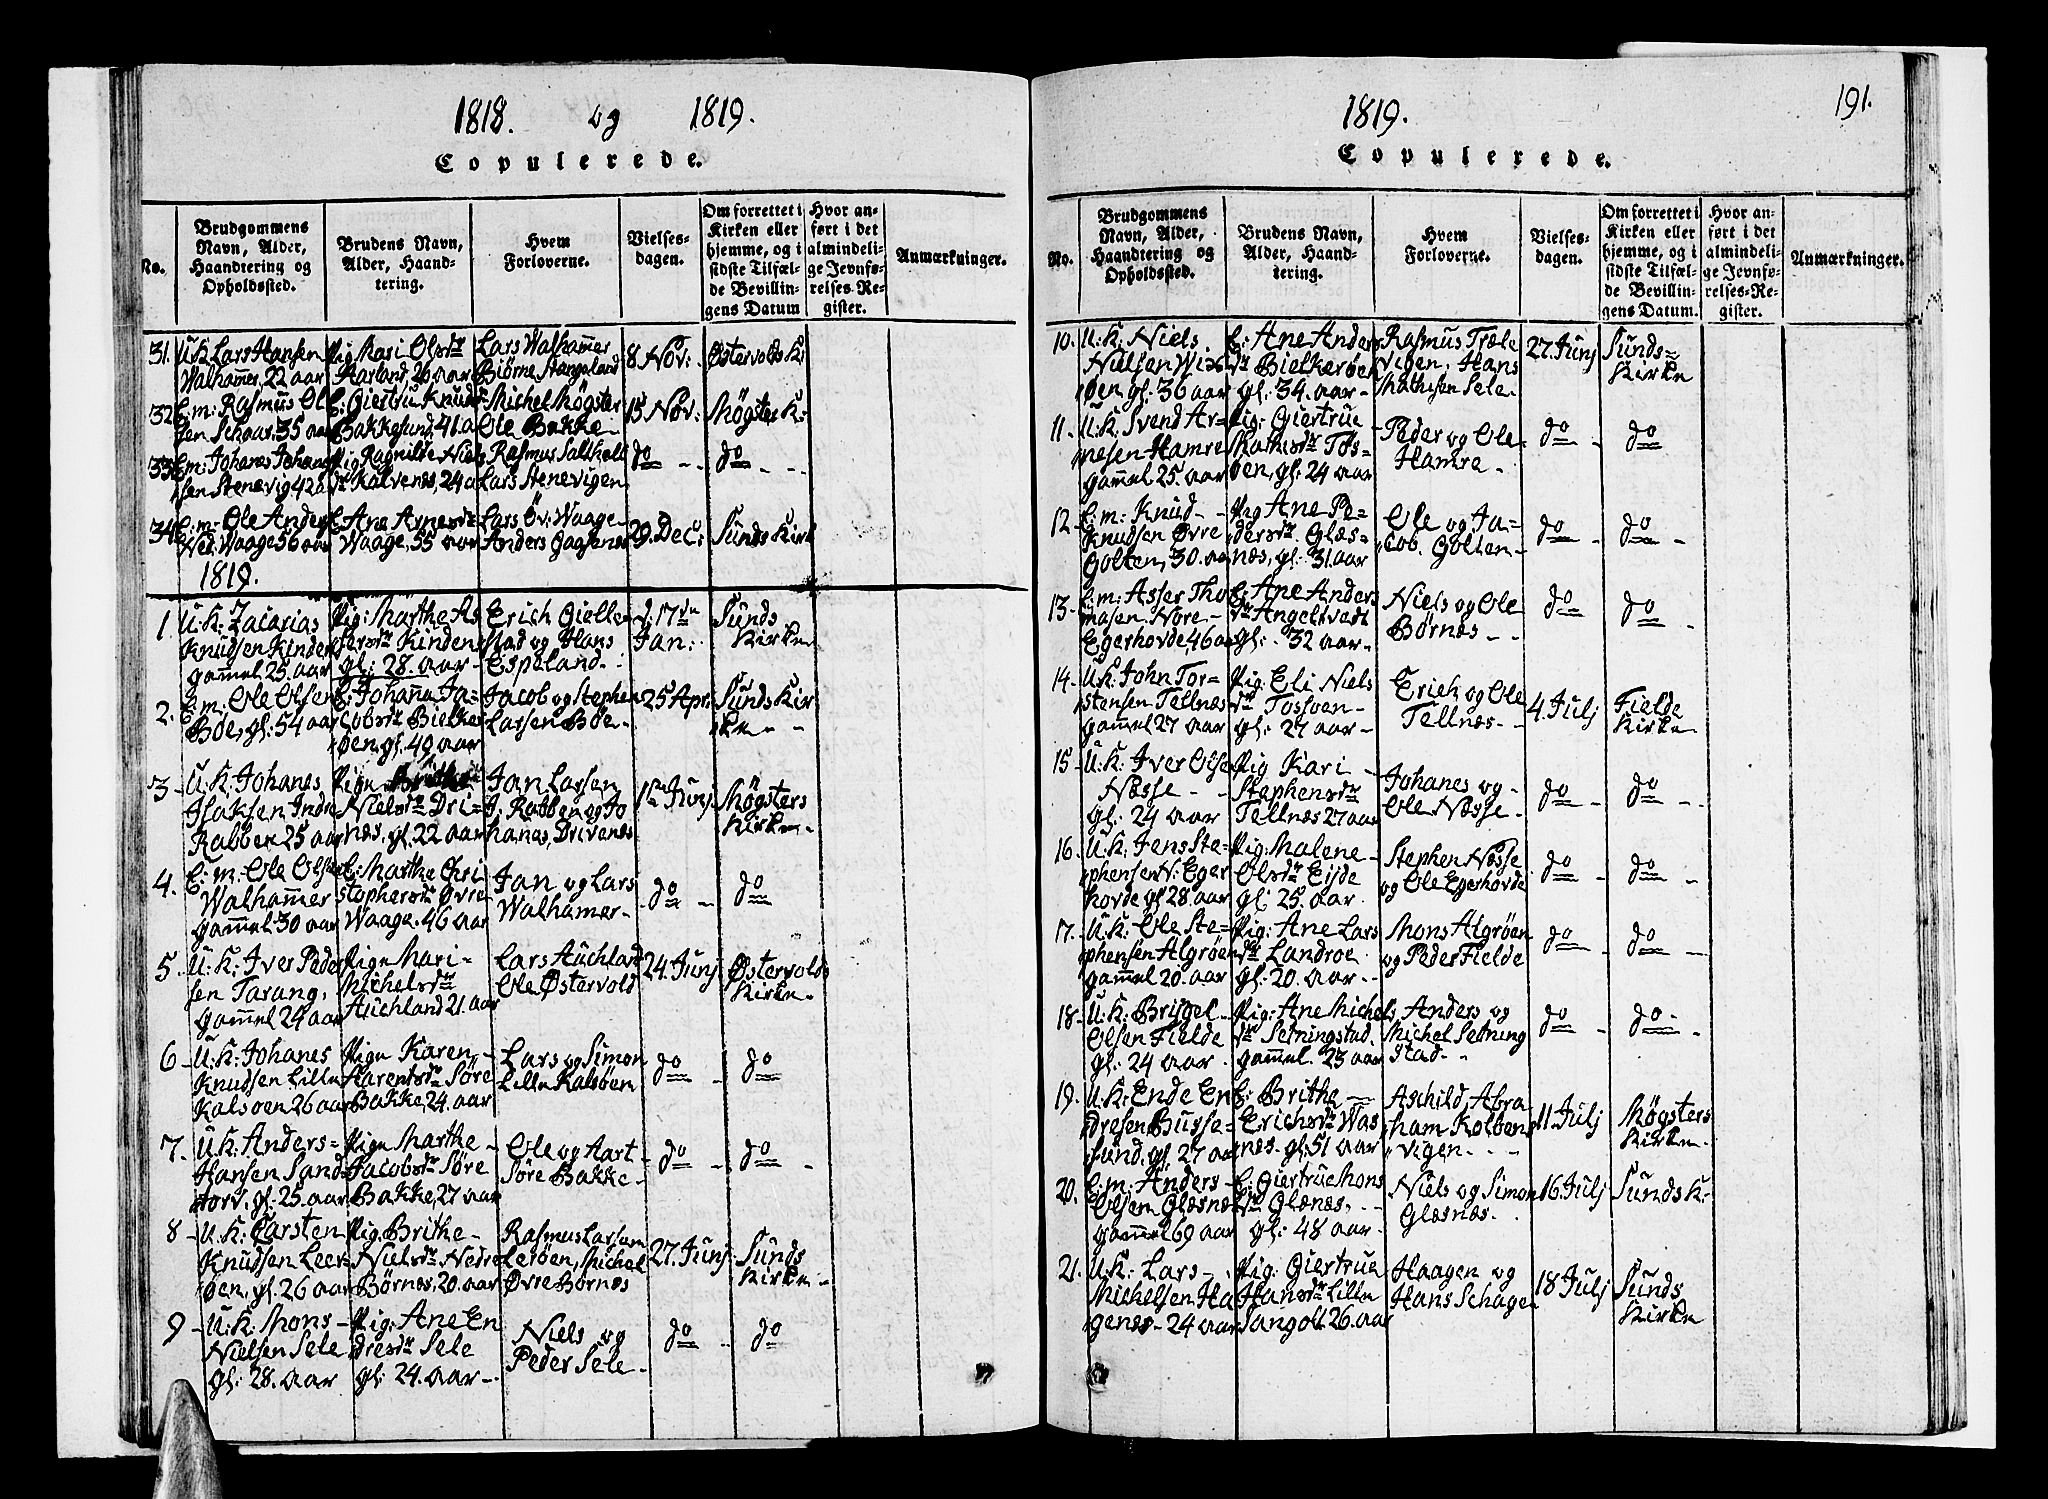 1818. og 1819.
Copulerede.
No.
Brudgommens
Navn, Alder,
Haandtering og
Opholdssted.
Brudens Navn,
Alder, Haand-
tering.
Hvem
Forloverne.
Vielses-
dagen.
Om forrettet i
Kirken eller
hjemme, og i
sidste Tilfæl-
de Bevillin-
gens Datum
Hvor an-
ført i det
almindeli-
ge Jevnfø-
relses-Re-
gister.
Anmærkninger.
31. U.K. Lars Hansen
Walhamer, 22 aar
Pig. Mari Olsdr
Aarland, 20 aar
Lars Walhamer
Biørne Stangeland
8 Nov:
Østervolds K:
32 E:m: Rasmus Ol
sen Schaar. 35 aar
E: Giertru Knuds
Bakkesund, 41. a
Michel Møgster
Ole Bakke
15 Nov:
Møgster K:
33 E:m: Johanes Johane
sen Stenevig 42 a
Pig Ragnilde Niels
dr Kalvenes, 24 a
Rasmus
Lars Stenevigen
do
do
34 E:m: Ole Anders
Ned: Waage 56 aar
E. Ane Arnesdr
Waage, 55 aar
Lars Öv: Waage
Anders
29. Dec:
Sunds Kirk
1819.
1. U:K: Zacarias
Knudsen Kinden
gammel 25. aar
Pig: Marthe As
sersdr Kinden
gl: 28. aar
Erich Gielle
stad og Hans
Espeland.
d: 17de
Jan:
Sunds
Kirken
2. E:m: Ole Olsen
Böe, gl: 54 aar
E: Johanna Ja=
cobsdr Bielke
øen, gl. 40 aar
Jacob og Stephen
Larsen Böe.
25 Apr:
Sunds Kir
ken
3 U:K: Johanes
Isaksen Indre
Rabben 25 aar
Pign Brithe
Nielsdr Dri=
næs, gl. 22 aar
Jan Larsen
J: Rabben og Jo
hanes, Drivenæs
Junj
Møgsters
Kirken.
4. E:m: Ole Olsen
Walhammer
gammel 30 aar
E: Marthe Chri
stophersdr Øvre
Waage. 46 aar
Jan og Lars
Walhamer
do
do
5 U:K: Iver Peder
sen Tarang.
gammel 24 aar
Pign Mari
Michelsdr
Auchland 21. aar
Lars Auchland
Ole Østervold
24. Junj
Østervolds
Kirken.
6 U:K: Johanes
Knudsen Lille
Kalsøen 26 aar
Pign Karen
Aarentsdr Søre
Bakke, 24. aar
Lars og Simon
Lille Kalsøen
do
do
7. U:K: Anders
Hansen Sand
torv. gl. 25. aar
Pign Marthe
Jacobsdr Søre
Bakke, 27 aar
Ole og Aart
Søre Bakke
do
do
8 U.K: Carsten
Knudsen Leer=
øen, gl. 26 aar
Pig. Brithe
Nielsdr Nedre
Børnes, 20. aar
Rasmus Larsen
Lerøen, Michel
Øvre Børnes
27. Junj:
Sunds
Kirken
9 U:K: Mons
Nielsen Sele
gl: 28. aar
Pig. Ane En
dresdr Sele
gl: 24. aar
Niels og
Peder Sele
do
do
191.
1819.
Copulerede.
No.
Brudgommens
Navn, Alder,
Haandtering og
Opholdssted.
Brudens Navn,
Alder, Haand-
tering.
Hvem
Forloverne.
Vielses-
dagen.
Om forrettet i
Kirken eller
hjemme, og i
sidste Tilfæl-
de Bevillin-
gens Datum.
Hvor an-
ført i det
almindeli-
ge Jevnfø-
relses-Re-
gister.
Anmærkninger.
10. U.K: Niels
Nielsen Wix
øen, gl. 36 aar
E. Ane Anders
dr Bielkerøen
gl: 34. aar
Rasmus Træle
vigen, Hans
Mathisen Sele.
27. Junj
Sunds=
Kirken
11. U:K: Svend Ar=
nesen Hamre
gammel 25. aar
Pig: Giertrue
Tøs=
øen, gl: 24 aar
Peder og Ole
Hamre
do
do
12 E:m: Knud
Knudsen Øvre
Golten, 30. aa
Pig Ane Pe=
dersdr. Glæs=
næs, gl: 31. aar
Ole og Ja=
cob. Golten
do
do
13 E:m: Asser Tho
masen Nore
Egerhovde, 46 aar
E. Ane Anders
dr Angeltvedt
gl: 32 aar
Niels og Ole
Børnæs
do
do
14. U:K: John Tor=
stensen Tellnæs
gammel 27 aar
Pig: Eli Niels
dr Tossøen
gl: 27 aar
Erich og Ole
Tellnæs
4. Julj
Fielde
Kirke
15 U:K: Iver Olse
Næsse
gl: 24 aar
Pig Kari
Stephensdr
Tellnæs 27 aar
Johanes og
Ole Næsse
do
do
16. U:K: Jens Ste=
phensen N: Eger
hovde gl. 28. aar
Pig: Malene
Olsdr Eijde
gl: 25. aar
Stephen Næsse
og Ole Egerhovde
do
do
17. U:K: Ole Ste=
phensen Algrøen
gammel 20. aar
Pig: Ane Lars
dr Landroe
gl: 20. aar
Mons Algrøen
og Peder Fielde
do
do
18 U:K: Brigel
Olsen Fielde
gl: 24 aar
Pig: Ane Michels
dr Setningstad
gammel. 23 aar
Anders og
Michel Setning
stad
do
do
19. U:K: Ende En
dresen Busse=
sund, gl. 27 aar
E: Brithe
Erichsdr Was
næs. gl: 51 aar
Aschild, Abra
ham Kolbens
vigen
11 Julj
Møgsters
Kirken.
20. E:m: Anders
Olsen Glæsnæ
gammel 69 aar
E: Giertrue Mons
dr Glænæs,
gl: 48 aar
Niels og Simon
Glæsnæs.
16 Julj
Sunds K:
21. U:K: Lars
Michelsen Ha
genæs 24 aar
Pig: Giertrue
Hansdr Lille
Sangolt 26. aar
Haagen og
Hans Schage
18 Julj
Sunds
Kirken